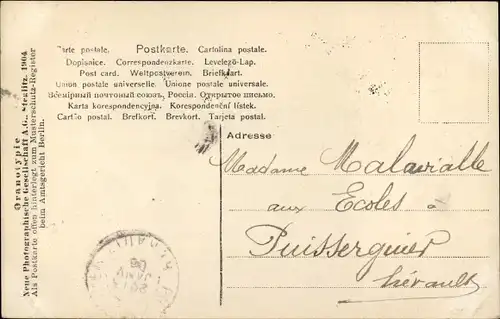 Carte postale. Postkarte. Cartolina postale.
Dopisnice. Correspondenzkarte. Levelező-Lap.
Post card. Weltpostverein. Briefkaart.
Union postale universelle. Unione postale universale.
Всемірный почтовый союзъ, Россія. Открытое письмо.
Karta korespondencyjna. Korespondenční lístek.
Cartão postal. Brefkort. Brevkort. Tarjeta postal.
Oranotypie
Neue Photographische Gesellschaft A.G., Steglitz. 1904.
Als Postkarte offen hinterlegt zum Musterschutz-Register
beim Amtsgericht Berlin.
Adresse
Madame Malavialle
aux Ecoles à
Puisserguier
Hérault